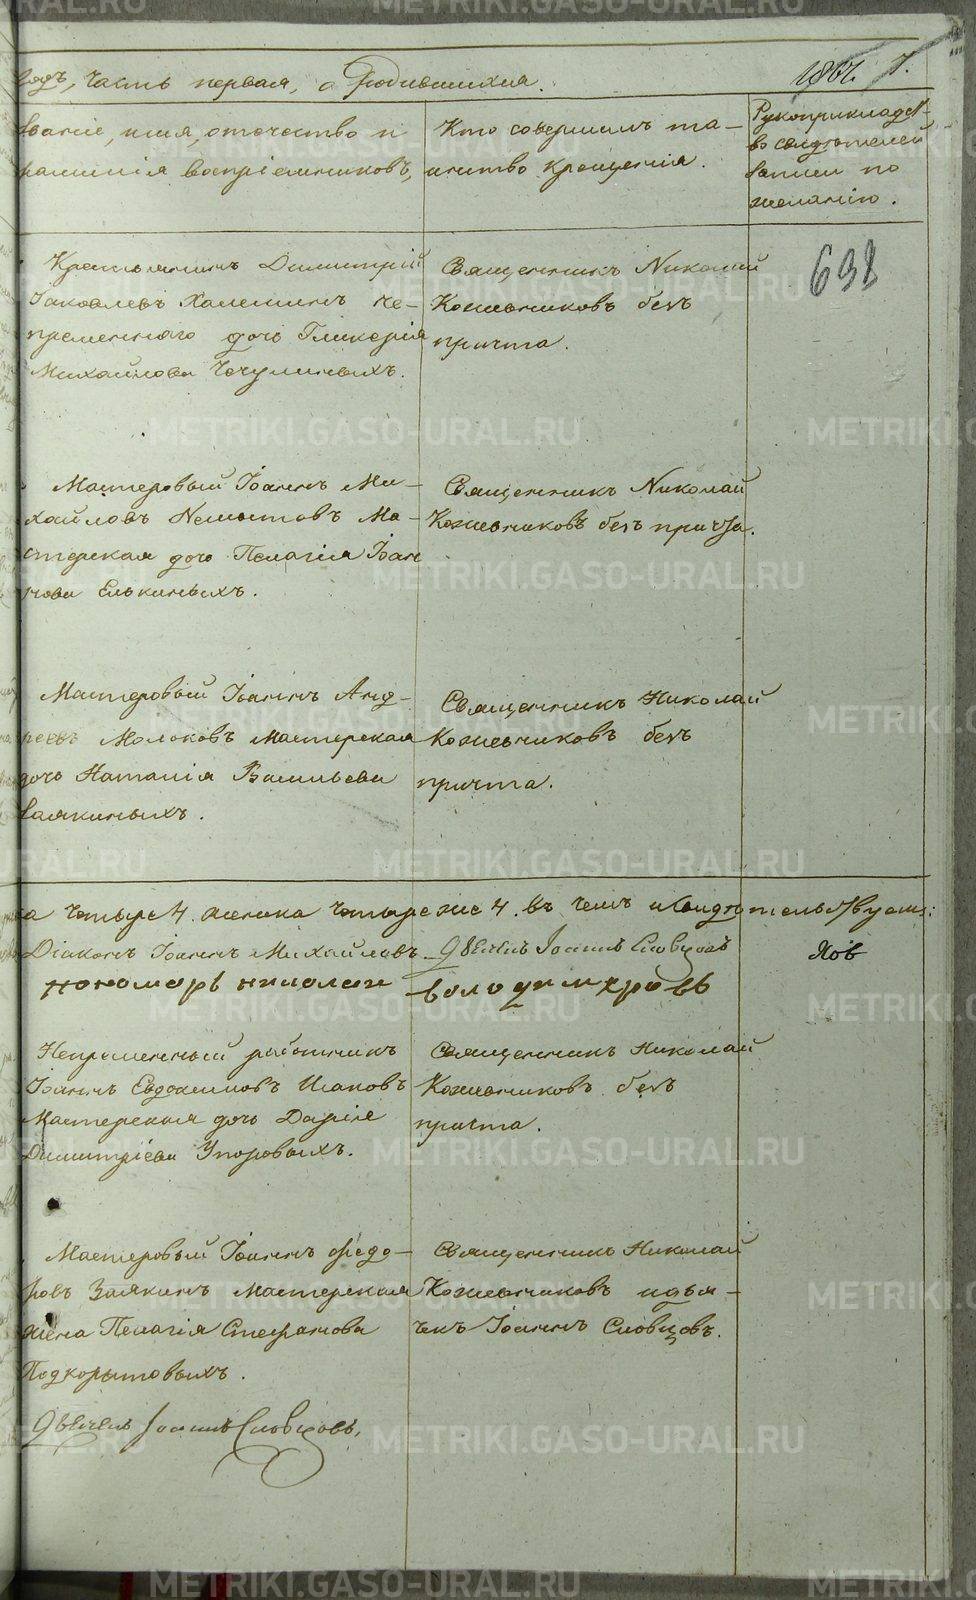 годъ, Часть первая, о Родившихся.
1861. 7.
Званіе, имя, отечество и
фамилія воспріемниковъ,
Кто совершалъ та-
инство крещенія.
Рукоприкладст-
во свидѣтелей
записи по
желанію.
698
Крестьянинъ Димитрій
Іаковлевъ Халеминъ не-
премѣннаго дочь Гликерія
Михайлова Чечулиныхъ.
Священникъ Николай
Кожевниковъ безъ
причта.
Мастеровый Іоаннъ Ми-
хайловъ Немытовъ Ма-
стерская дочь Пелагія Іоан
нова Елькиныхъ.
Священникъ Николай
Кожевниковъ безъ причта.
Мастеровый Іоаннъ Анд-
реевъ Молоковъ Мастерская
дочь Наталія Васильева
Заякиныхъ.
Священникъ Николай
Кожевниковъ безъ
причта.
а четыре 4. женска четыре же 4. въ чемъ и свидѣтельствуемъ:
Діаконъ Іоаннъ Михайловъ. Дьячекъ Іоаннъ Словцовъ
Пономарь николай володимкровъ
Непремѣнный работникъ
Іоаннъ Евдокимовъ Исаковъ
Мастерская дочь Дарія
Димитріева Упоровыхъ.
Священникъ Николай
Кожевниковъ безъ
причта.
Мастеровый Іоаннъ Ѳедо-
ровъ Заякинъ мастерская
жена Пелагія Стефанова
Подкорытовыхъ.
Священникъ Николай
Кожевниковъ и дья-
чекъ Іоаннъ Словцовъ.
Дьячекъ Іоаннъ Словцовъ.
METRIKI.GASO-URAL.RU